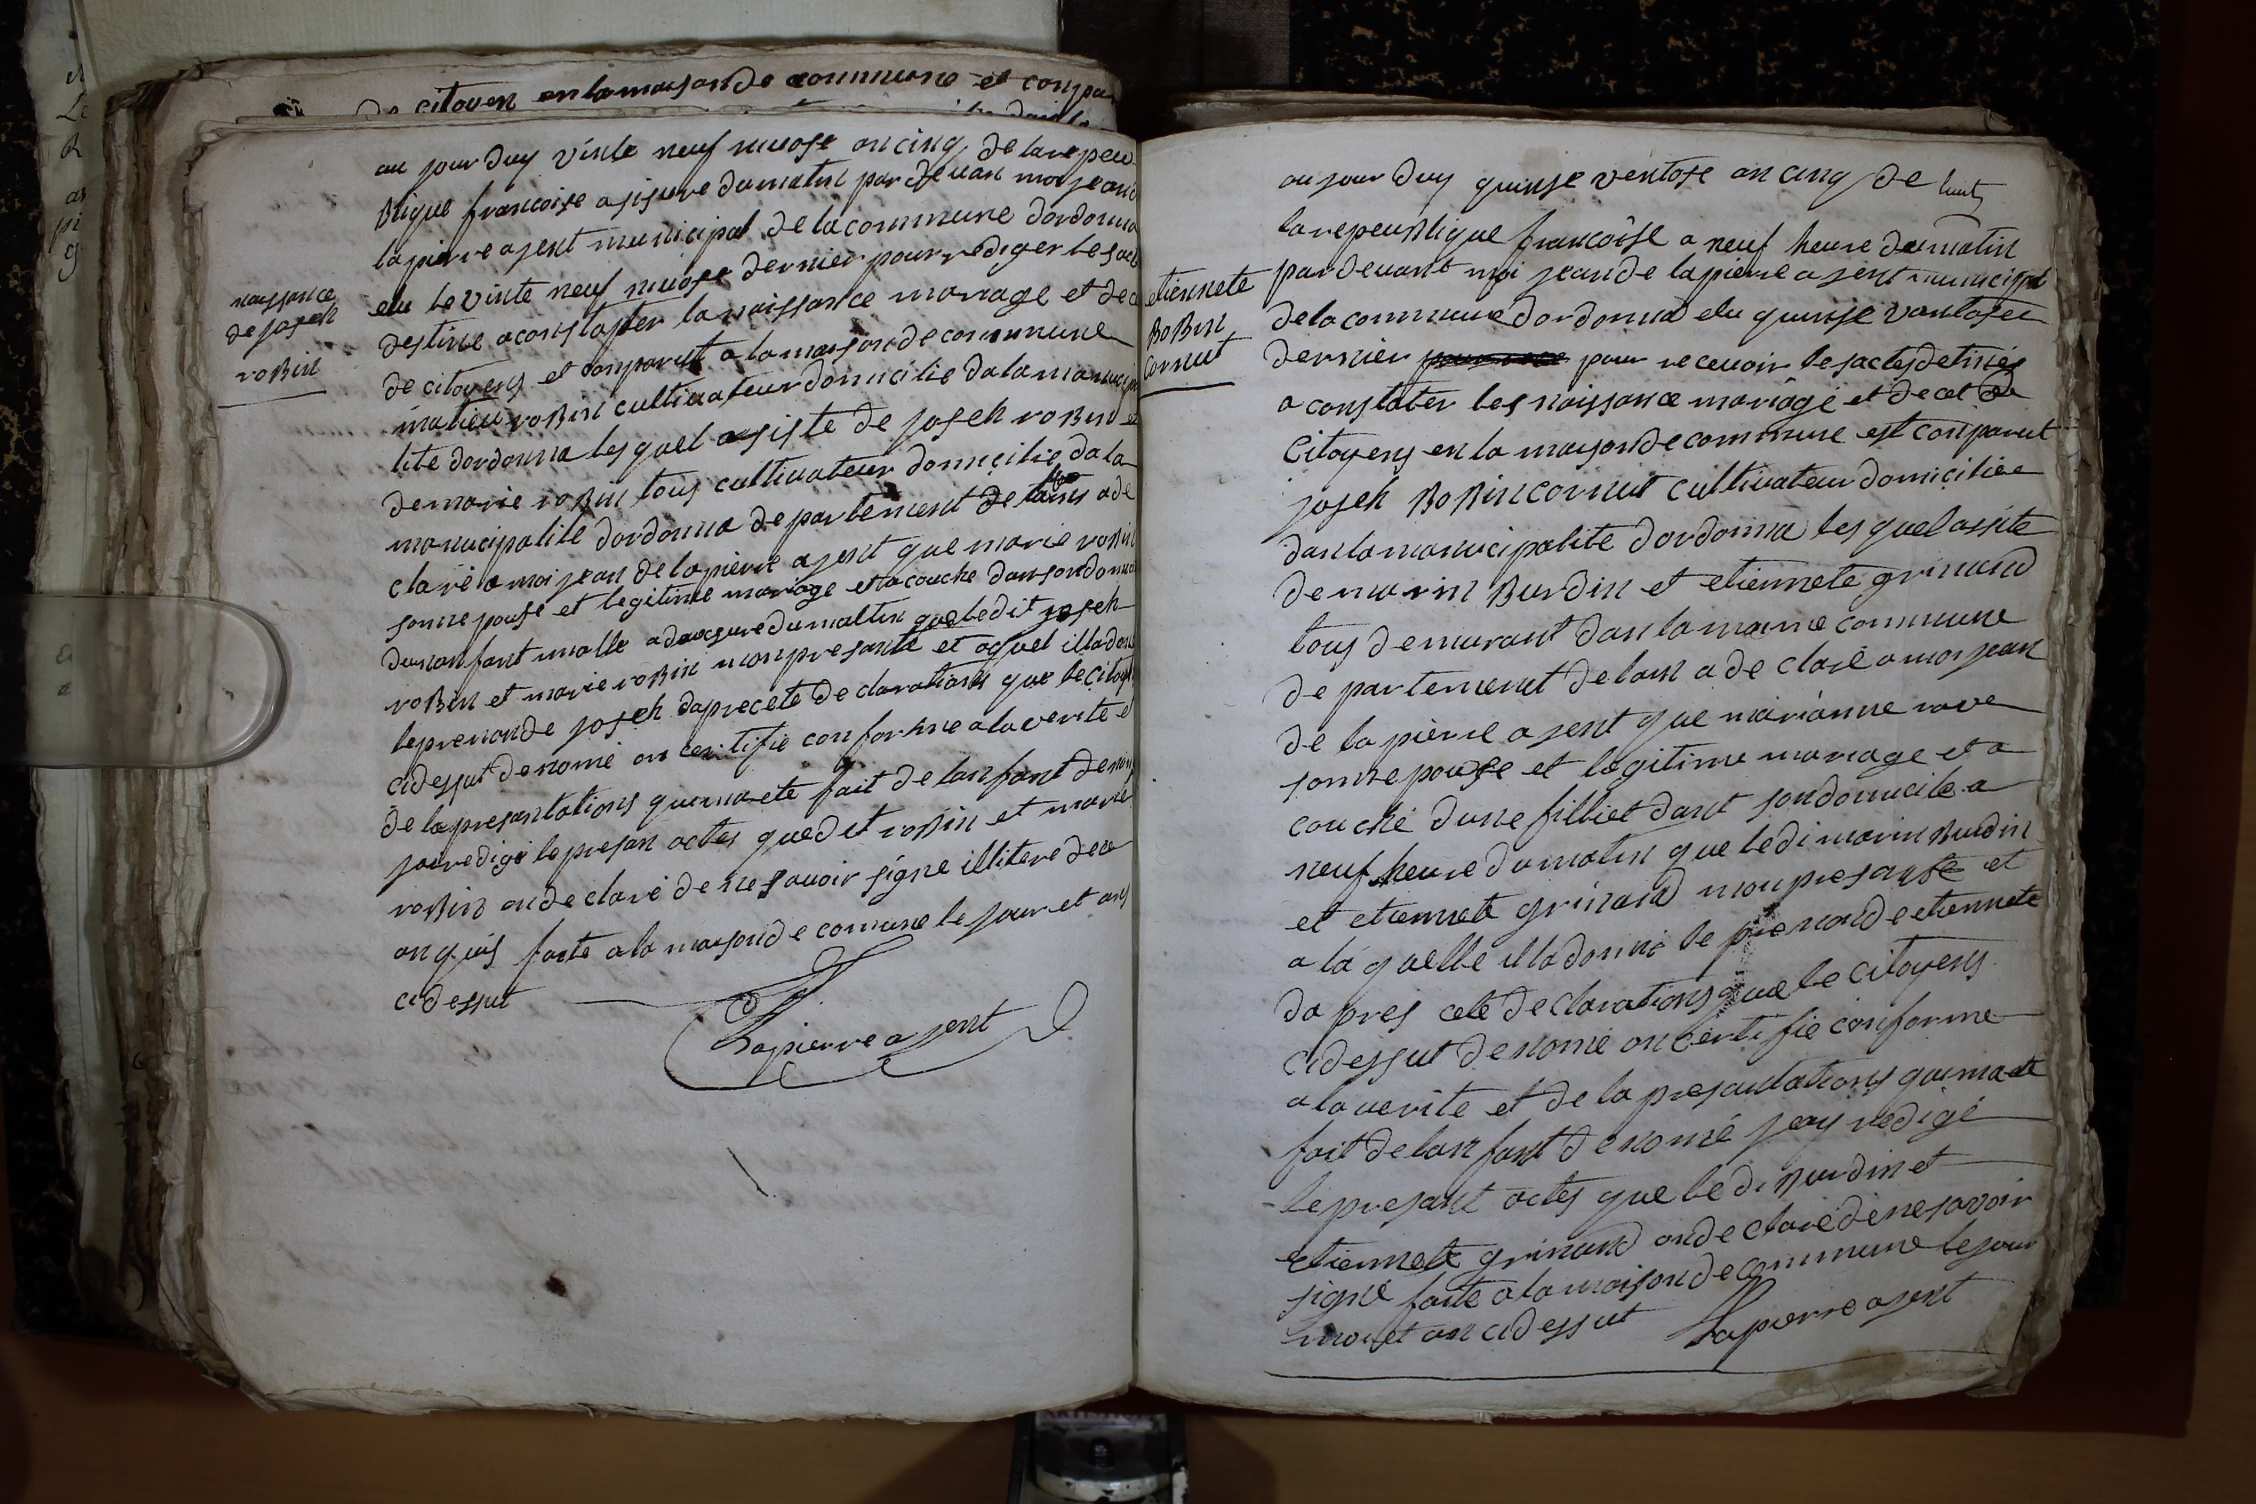 de citoyen en la maison de commune et conpa
naissance
de joseh
roBin
au jourduy vinte neuf nivose an cinq de la repeu
Blique francoise a sis eure du matin par devan moi jean de
lapierre ajent municipal de la commune dordonna
elu le vinte neuf nivose dernier pour rediger les act
destine a constapter la naissance mariage et dec
de citoyens et comparut a la maison de commune
matieu roBin cultivateur domicilie da la manucipa
lite dordonna lesquel asiste de joseh roBin et
de marie roBin tous cultivateur domicilie da la
manucipalite dordonna departement de lain a de
claré a moi jean de lapierre ajent que marie roBin
sonne pouse et legitime mariage et a couche dan son domi
dun anfant malle a deus eure du mattin que ledit joseh
roBin et marie roBin mon presanté et aquel illa donn
le prenon de joseh daprecete declarations que le citoyen
cidessut denomé on certifie conforme a la verite et
de la presantations qui ma ete fait de lanfant denom
jai redigé le presan actes que dit roBin et marie
roBin on declaré de ne savoir signe illitere de ce
anquis faite a la maison de commune le jour et ans
cidessut
Lapierre ajent
etiennete
BoBin
Cornut
au jourduy quinse ventose an cinq de huit
la repeublique francoise a neuf heure du matin
par devant moi jean de lapierre ajent municipal
de la commune dordonna elu quinse vantose
dernier pour recevoir les actes detinés
a constater les naissance mariage et decet de
Citoyens en la maison de commune est conparut
joseh BoBin cornut cultivateur domiciliée
dan la manucipalite dordonna lesquel assite
de marin Burdin et etiennete grinand
tous demurant dan la maime commune
departement de lain a declaré a moi jean
de la pierre ajent que marianne rave
sonne pouse et legitime mariage et a
couché dune filliet dant son domicile a
neuf heure du matin que ledi marin Burdin
et etiennete grinand mon presanté et
a laquelle illa donné le prenon de etiennete
dapres cete declarations que le Citoyens
cidessut denomé on certifie conforme
a la verite et de la presantations qui ma ete
fait de lanfant denomé jeay redigé
le presant actes que ledi Burdin et
etiennete grinand on declaré de ne savoir
signé faite a la maison de commune le jour
moi et an cidessut Lapierre ajent